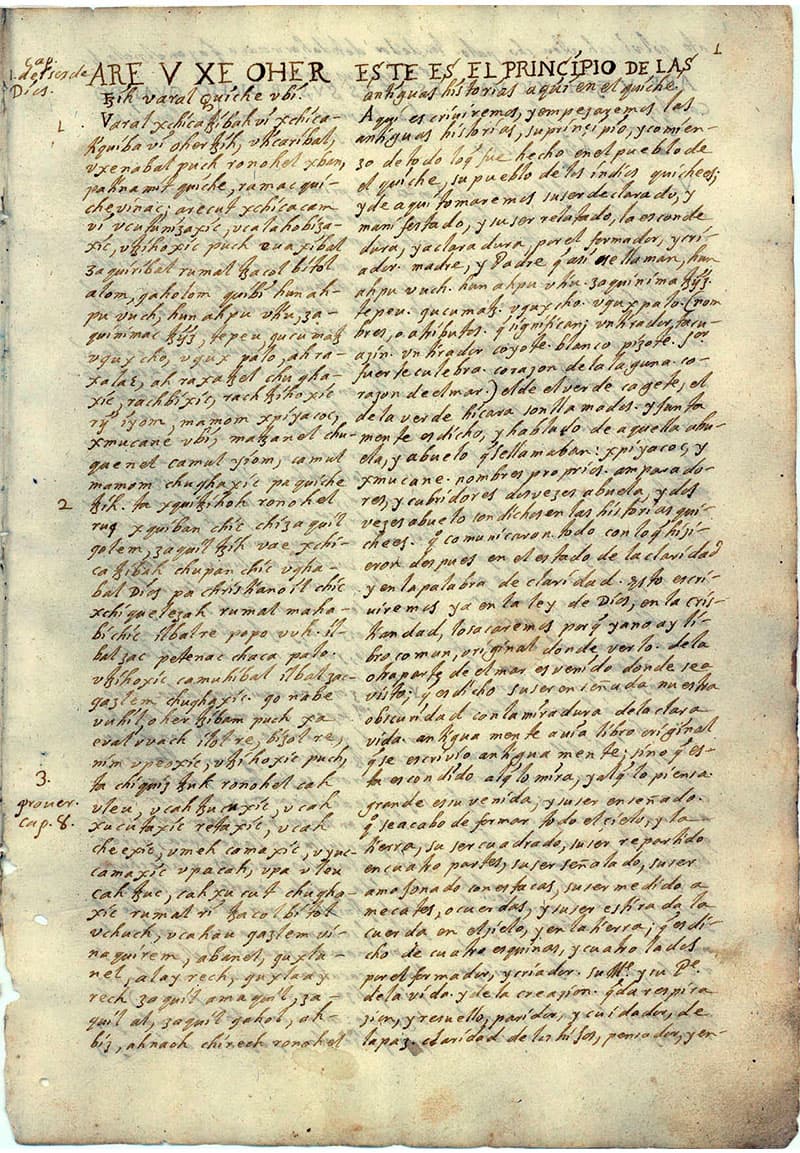 1
Cap.
1. del ser de
Dios.
ARE V XE OHER
ꜩih varal Quiche vbi.
1
Varal xchicaꜩibah vi xchica-
tiquiba vi oher tzih, vticaribal,
vxenabal puch ronohel xban,
pa tinamit quiche, ramac qui-
che vinac; arecut xchicacam
vi vcutunizaxic, vcalahobiza-
xic, vtzihoxic puch euaxibal
zaquiribal rumal tzacol bitol
alom, qaholom quibi hun ah-
pu vuch, hun ahpu vtiu, za-
quinimac tzyz, tepeu, qucumatz
vqux cho, vqux palo, ah ra-
xalac, ah raxa tzel chugha-
xic, rachbixic, rachtzihoxic
rij iyom, mamom xpiyacoc,
xmucane vbi, matzanel chu-
quenel camul yiom, camul
mamom chughaxic pa quiche
2
tzih. ta xquitzihoh ronohel
ruq xquiban chic chi zaquil
qolem, zaquil tzih vae xchi-
catzibah chupan chic vgha-
bal Dios pa christianoil chic
xchiquelezah rumal maha-
bi chic ilbal re popo vuh. il-
bal zac petenac chaca palo.
vtzihoxic camuhibal ilbal zac-
qazlem chughaxic. go nabe
vuhil, oher tzibam puch xa
eval vvach ilol re, bizol re,
nim vpeoxic, vtzihoxic puch,
3.
ta chiquis tzuk ronohel cah
prouer.
cap. 8.
vleu, vcah tzucuxic, vcah
xucutaxic retaxic, vcah
cheexic, vmeh camaxic, vyuc-
camaxic vpa cah, vpa vleu
cah tzuc, cah xucut chugha-
xic rumal ri tzacol bitol
vchuch, vcahau qazlem vi-
naquirem, abanel, quxla-
nel, alay rech, quxlaay
rech zaquil amaquil, za-
quil al, zaquil qahol, ah-
biz, ahnaoh chirech ronohel
ESTE ES EL PRINCIPIO DE LAS
antiguas historias aqui en el quiche.
Aqui escriviremos, y empezaremos las
antiguas historias, su principio, y comien-
zo de todo lo q̃ fue hecho en el pueblo de
el quiche, su pueblo de los indios quichees;
y de aqui tomaremos su ser declarado, y
manifestado, y su ser relatado, la esconde
dura, y aclaradura, por el formador, y cri-
ador. madre, y Padre q̃ asi se llaman, hun
ahpu vuch. hun ahpu vtiu. zaquinima tzyz.
tepeu. qucumatz. vqux cho. vqux palo. (nom
bres, o atributos. q̃ significan; vn tirador tacu-
azin. vn tirador coyote. blanco pizote. Sor
fuerte culebra. corazon de la laguna. co-
razon de el mar.) el de el verde cagete, el
de la verde hicara son llamados. y junta
mente es dicho, y hablado de aquella abu-
ela, y abuelo q̃ se llamaban: xpiyacoc, y
xmucane. nombres proprios. amparado-
res, y cubridores dos vezes abuela, y dos
vezes abuelo son dichos en las historias qui-
chees. q̃ comunicaron. todo con lo q̃ hizi-
eron despues en el estado de la claridad
y en la palabra de claridad. Esto escri-
uiremos ya en la ley de Dios, en la cris-
tiandad, lo sacaremos porq̃ ya no ay li-
bro comun, original donde verlo. de la
otra parte de el mar es venido donde se a
visto; q̃ es dicho su ser enseñada nuestra
obscuridad con la miradura de la clara
vida. antigua mente auia libro original
q̃ se escrivio antigua mente; sino q̃ es-
ta escondido al q̃ lo mira, y al q̃ lo piensa.
grande es su venida, y su ser enseñado.
q̃ se acabo de formar todo el cielo, y la
tierra, su ser cuadrado, su ser repartido
en cuatro partes, su ser señalado, su ser
amojonado con estacas, su ser medido a
mecates, o cuerdas, y su ser estirada la
cuerda en el cielo, y en la tierra; q̃ es di-
cho de cuatro esquinas, y cuatro lados
por el formador, y criador. su Me. y su Pe.
de la vida. y de la creazion. q̃ da respira
zion, y resuello, paridor, y cuidador, de
la paz. claridad de los hijos, pensador, y en-